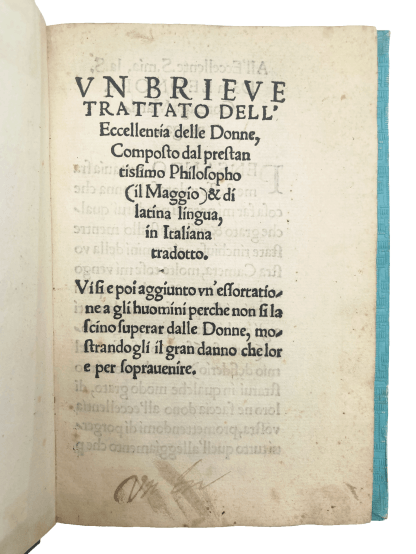 VN BRIEVE
TRATTATO DELL'
Eccellentia delle Donne,
Composto dal prestan
tissimo Philosopho
(il Maggio) & di
latina lingua,
in Italiana
tradotto.
Vi si e poi aggiunto vn' essortatio-
ne a gli huomini perche non si la
scino superar dalle Donne, mo-
strandogli il gran danno che lor
e per soprauenire.